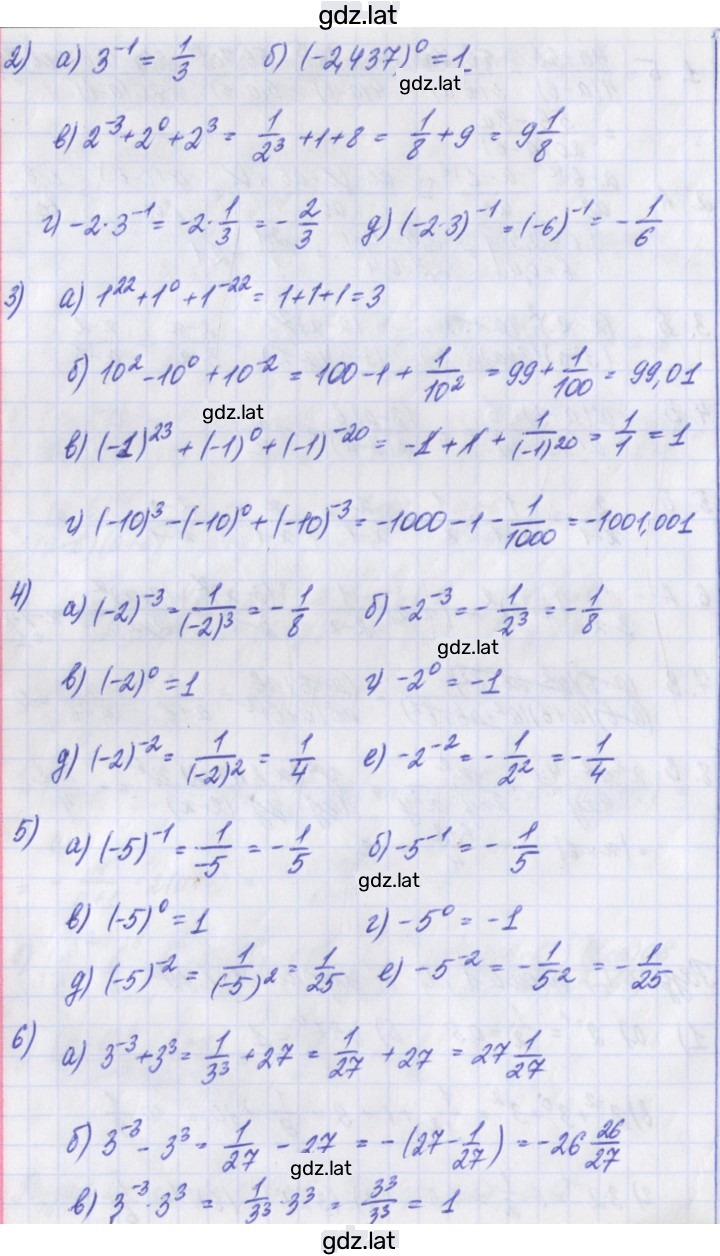 gdz.lat
2) а) 3⁻¹ = 1/3 б) (-2,437)⁰ = 1
gdz.lat
в) 2⁻³ + 2⁰ + 2³ = 1/2³ + 1 + 8 = 1/8 + 9 = 9 1/8
г) -2·3⁻¹ = -2·1/3 = -2/3 д) (-2·3)⁻¹ = (-6)⁻¹ = -1/6
3) а) 1²² + 1⁰ + 1⁻²² = 1+1+1 = 3
б) 10² - 10⁰ + 10⁻² = 100 - 1 + 1/10² = 99 + 1/100 = 99,01
gdz.lat
в) (-1)²³ + (-1)⁰ + (-1)⁻²⁰ = -1 + 1 + 1/(-1)²⁰ = 1/1 = 1
г) (-10)³ - (-10)⁰ + (-10)⁻³ = -1000 - 1 - 1/1000 = -1001,001
4) а) (-2)⁻³ = 1/(-2)³ = -1/8 б) -2⁻³ = -1/2³ = -1/8
gdz.lat
в) (-2)⁰ = 1 г) -2⁰ = -1
д) (-2)⁻² = 1/(-2)² = 1/4 е) -2⁻² = -1/2² = -1/4
5) а) (-5)⁻¹ = 1/-5 = -1/5 б) -5⁻¹ = -1/5
gdz.lat
в) (-5)⁰ = 1 г) -5⁰ = -1
д) (-5)⁻² = 1/(-5)² = 1/25 е) -5⁻² = -1/5² = -1/25
6) а) 3⁻³ + 3³ = 1/3³ + 27 = 1/27 + 27 = 27 1/27
б) 3⁻³ - 3³ = 1/27 - 27 = -(27 - 1/27) = -26 26/27
gdz.lat
в) 3⁻³·3³ = 1/3³·3³ = 3³/3³ = 1
gdz.lat